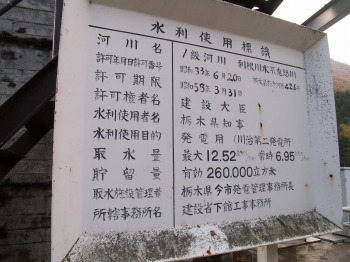 水利使用標識
河川名 1級河川 利根川水系鬼怒川
許可年月日許可番号 昭和33年6月20日 栃木県
許可期限 昭和58年3月31日
許可権者名 建設大臣
水利使用者名 栃木県知事
水利使用目的 発電用(川治第二発電所)
取水量 最大12.52 常時6.95
貯留量 有効260.000立方米
取水施設管理者 栃木県今市発電管理事務所長
所轄事務所名 建設省下館工事事務所